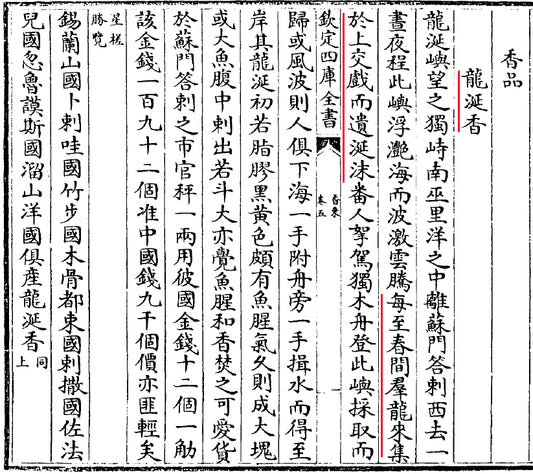 香品
龍涎香
龍涎嶼望之獨峙南巫里洋之中離蘇門答剌西去一
晝夜程此嶼浮灔海而波激雲騰每至春間羣龍來集
於上交戲而遺涎沫番人拏駕獨木舟登此嶼採取而
欽定四庫全書
香乘
卷五
一
歸或風波則人俱下海一手附舟旁一手揖水而得至
岸其龍涎初若脂膠黑黄色頗有魚腥氣久則成大塊
或大魚腹中刺出若斗大亦覺魚腥和香焚之可愛貨
於蘇門答剌之市官秤一兩用彼國金錢十二個一觔
該金錢一百九十二個准中國錢九千個價亦匪輕矣
星槎
勝覽
錫蘭山國卜剌哇國竹步國木骨都東國剌撒國佐法
兒國忽魯謨斯國溜山洋國俱産龍涎香同
上